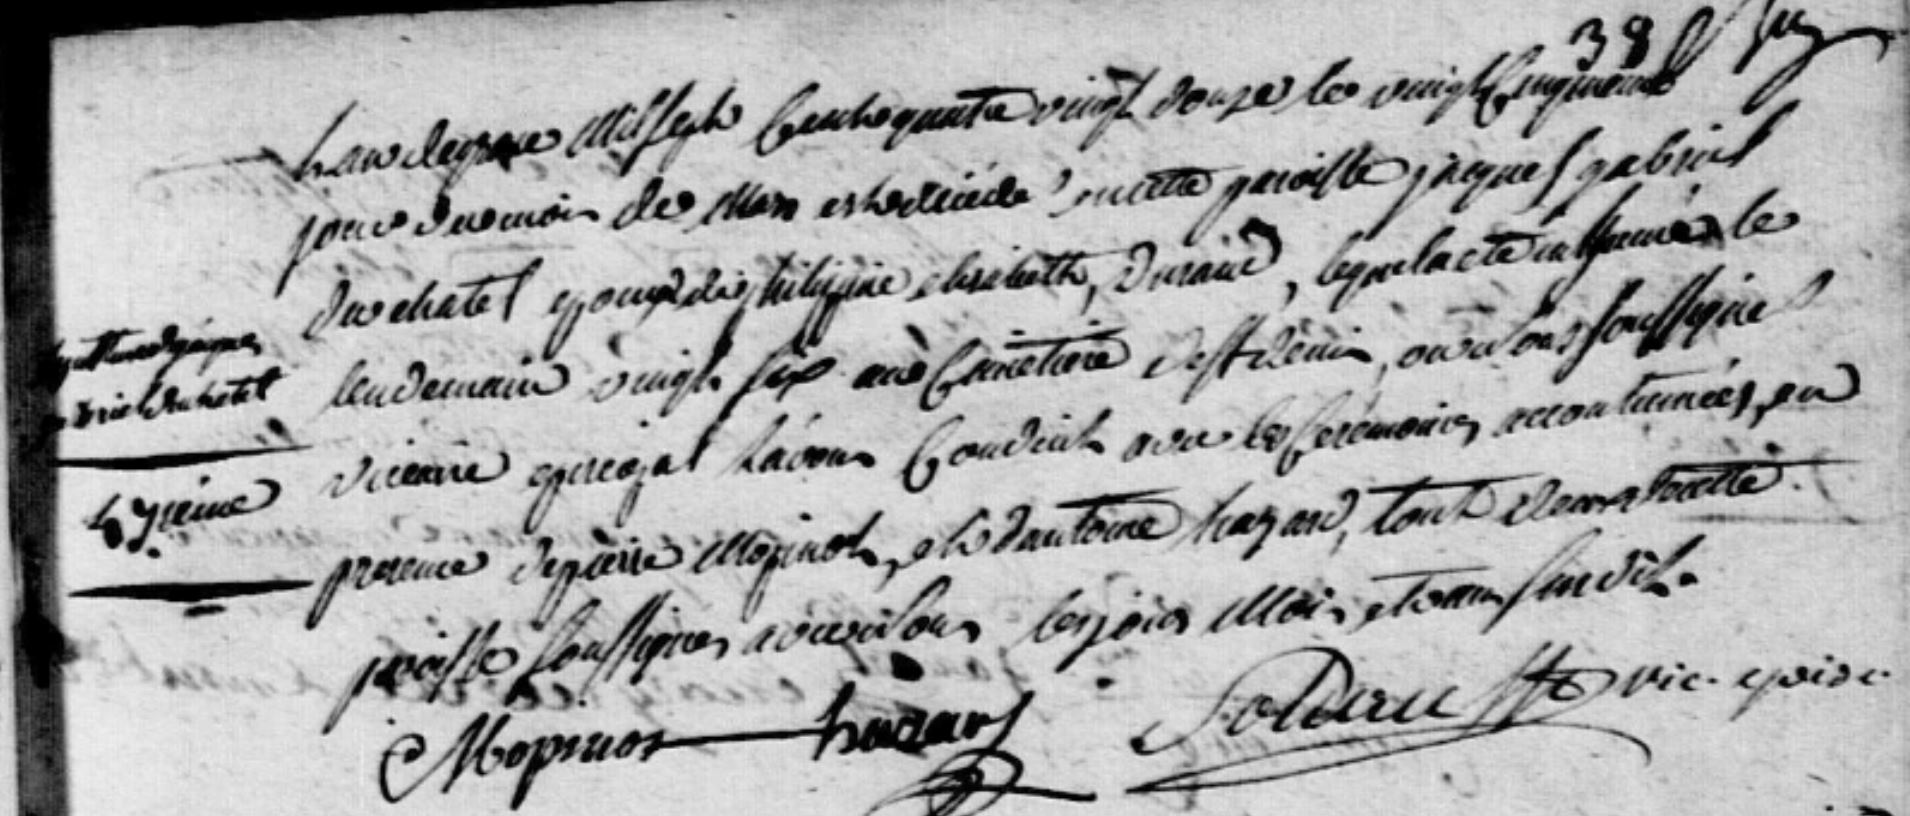 38
L'an de grace mil sept cent quatre vingt douze le vingt cinquieme
jour du mois de mars est décédé en cette paroisse jacques gabriel
duchatel epoux de philippine elisabeth, durand, lequel a été inhumé le
lendemain vingt six au cimetiere de st denis, ou nous soussigné
vicaire episcopal l'avons conduit avec les ceremonies accoutumées, en
presence de pierre Mopinot, et d'antoine hazard, tout deux de cette
paroisse soussignes avec nous les jour mois et an susdit.
gabriel duchatel
47 ieme
Mopinot hazard vic. episc.